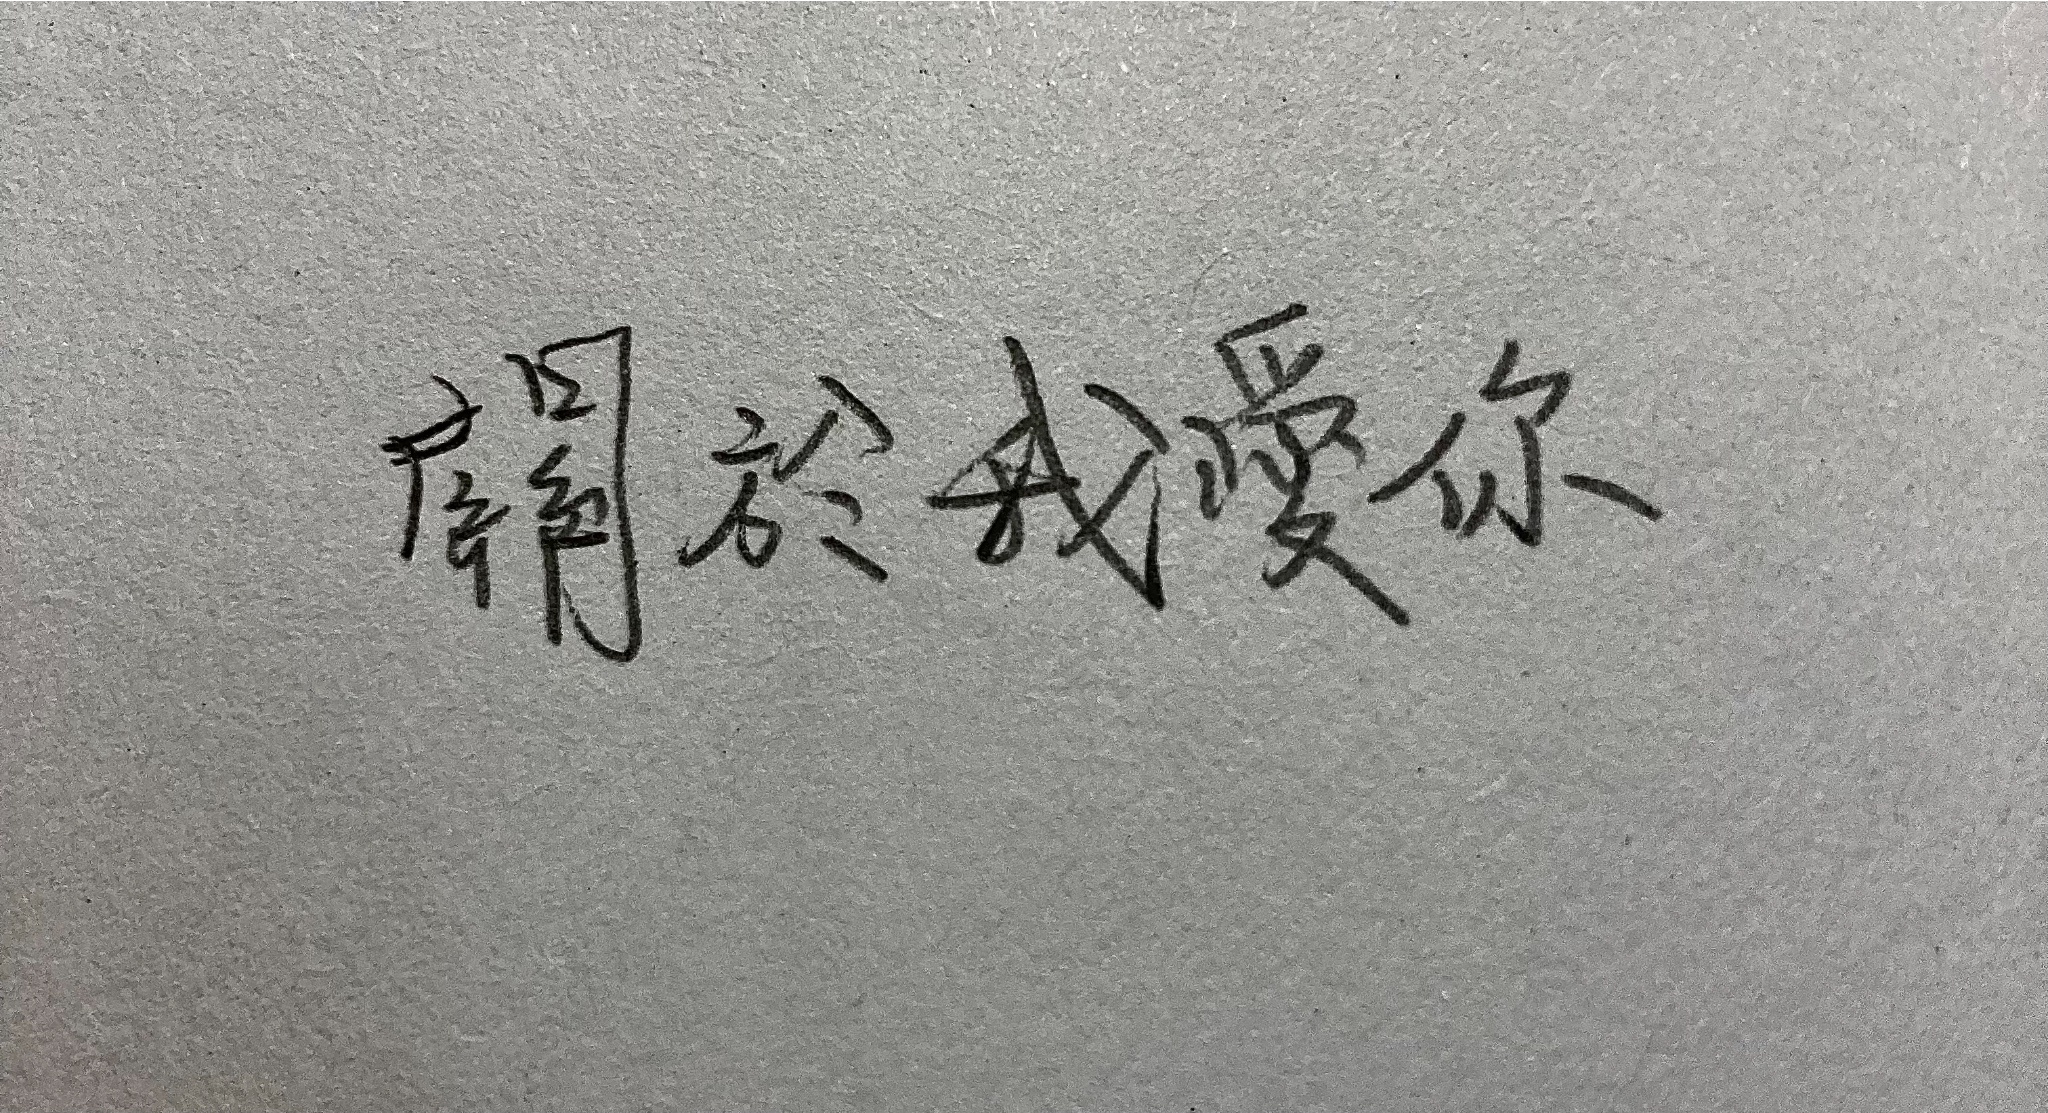 關於我愛你